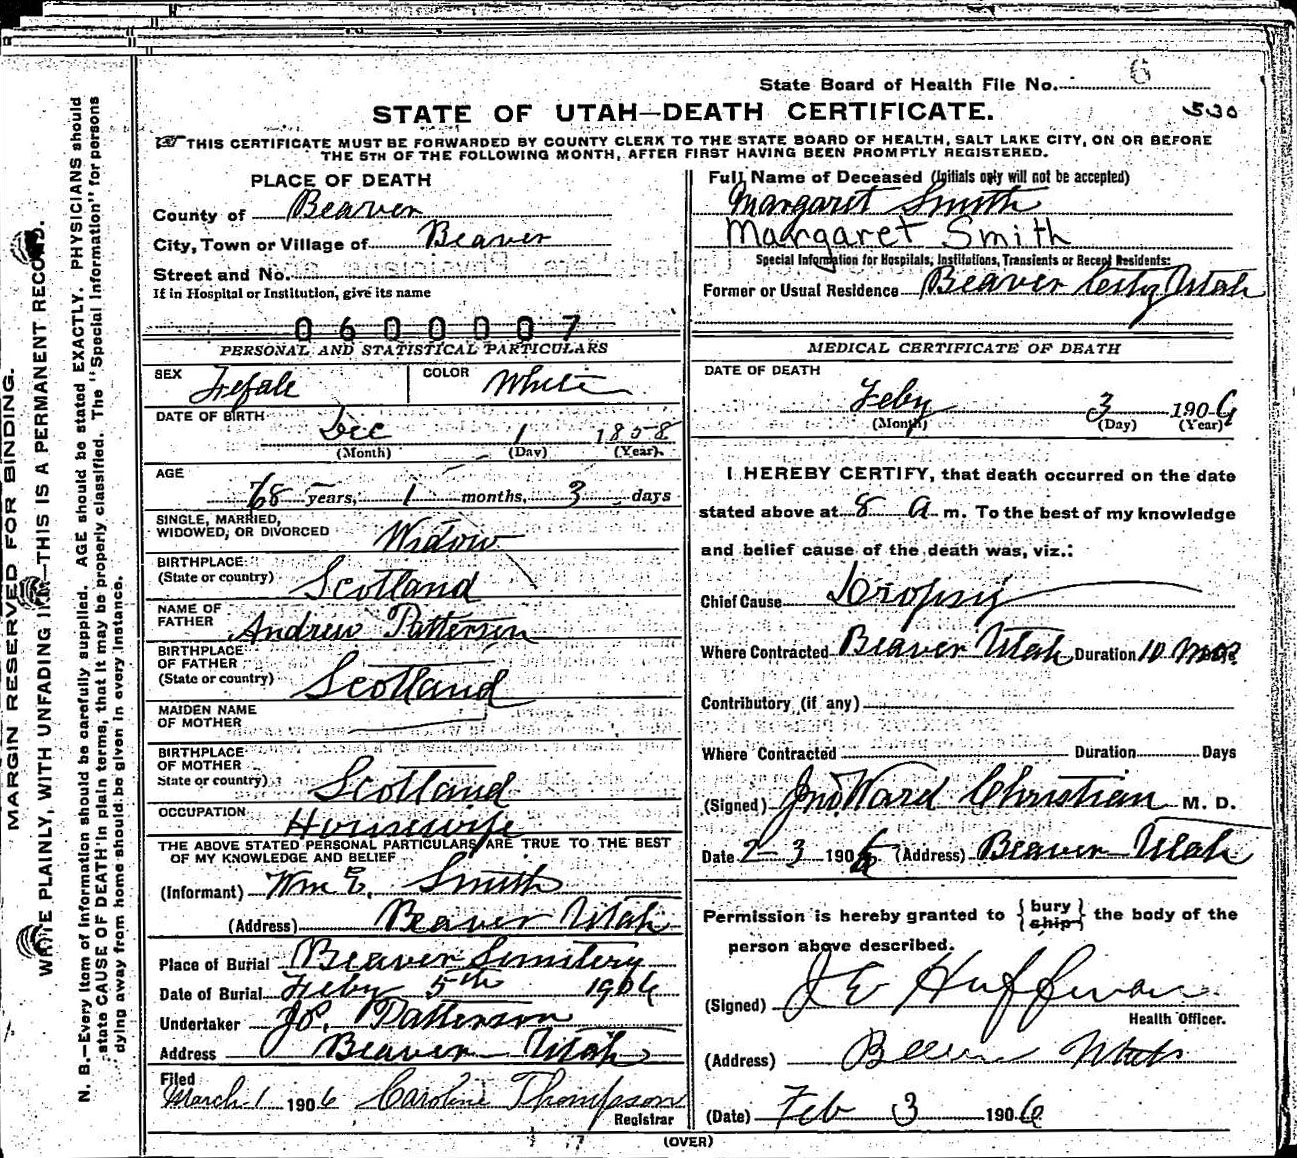 State Board of Health File No. 6
STATE OF UTAH—DEATH CERTIFICATE.
530
THIS CERTIFICATE MUST BE FORWARDED BY COUNTY CLERK TO THE STATE BOARD OF HEALTH, SALT LAKE CITY, ON OR BEFORE
THE 5TH OF THE FOLLOWING MONTH, AFTER FIRST HAVING BEEN PROMPTLY REGISTERED.
PLACE OF DEATH
County of Beaver
City, Town or Village of Beaver
Street and No.
If in Hospital or Institution, give its name
0600007
PERSONAL AND STATISTICAL PARTICULARS
SEX Fefale
COLOR White
DATE OF BIRTH
Dec 1 1858
(Month) (Day) (Year).
AGE
68 years, 1 months, 3 days
SINGLE, MARRIED,
WIDOWED, OR DIVORCED Widow
BIRTHPLACE
(State or country) Scotland
NAME OF
FATHER Andrew Patterson
BIRTHPLACE
OF FATHER
(State or country) Scotland
MAIDEN NAME
OF MOTHER
BIRTHPLACE
OF MOTHER
State or country) Scotland
OCCUPATION
Housewife
THE ABOVE STATED PERSONAL PARTICULARS ARE TRUE TO THE BEST
OF MY KNOWLEDGE AND BELIEF
(Informant) Wm E. Smith
(Address) Beaver Utah
Place of Burial Beaver Semitery
Date of Burial Feby 5th 1906
Undertaker Jo. Patterson
Address Beaver Utah
Filed
March 1 1906 Caroline Thompson
Registrar
Full Name of Deceased (Initials only will not be accepted)
Margaret Smith
Margaret Smith
Special Information for Hospitals, Institutions, Transients or Recent Residents:
Former or Usual Residence Beaver City Utah
MEDICAL CERTIFICATE OF DEATH
DATE OF DEATH
Feby 3 1906
(Month) (Day) (Year)
I HEREBY CERTIFY, that death occurred on the date
stated above at 8 a m. To the best of my knowledge
and belief cause of the death was, viz.:
Chief Cause Dropsy
Where Contracted Beaver Utah Duration 10 mos
Contributory (if any)
Where Contracted Duration Days
(Signed) Jno Ward Christian M. D.
Date 2-3 1906 (Address) Beaver Utah
Permission is hereby granted to {bury ship} the body of the
person above described.
(Signed) J E Huffman
Health Officer.
(Address) Beaver Utah
(Date) Feb 3 1906
(OVER)
MARGIN RESERVED FOR BINDING.
WRITE PLAINLY, WITH UNFADING INK—THIS IS A PERMANENT RECORD.
N. B.—Every item of information should be carefully supplied. AGE should be stated EXACTLY. PHYSICIANS should
state CAUSE OF DEATH in plain terms, that it may be properly classified. The "Special Information" for persons
dying away from home should be given in every instance.